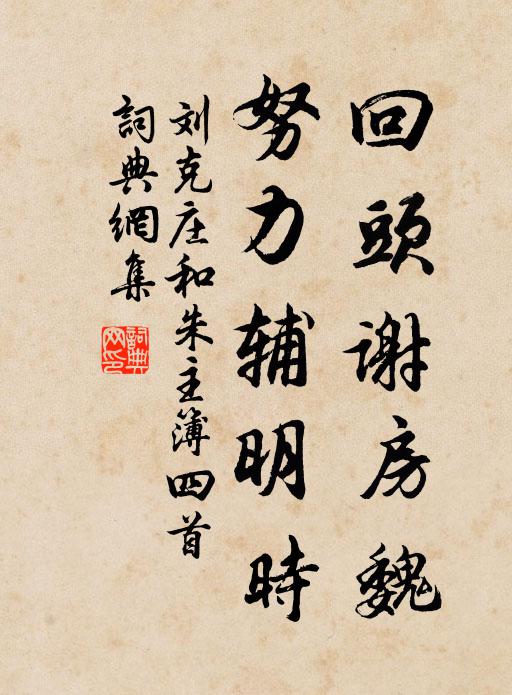 回頭谢房魏
努力辅明時
刘克庄和朱主簿四首
詞典網集
詞典网印